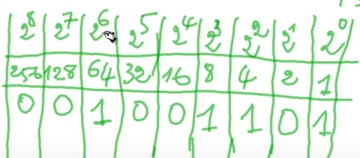 2⁸ 2⁷ 2⁶ 2⁵ 2⁴ 2³ 2² 2¹ 2⁰
256 128 64 32 16 8 4 2 1
0 0 1 0 0 1 1 0 1